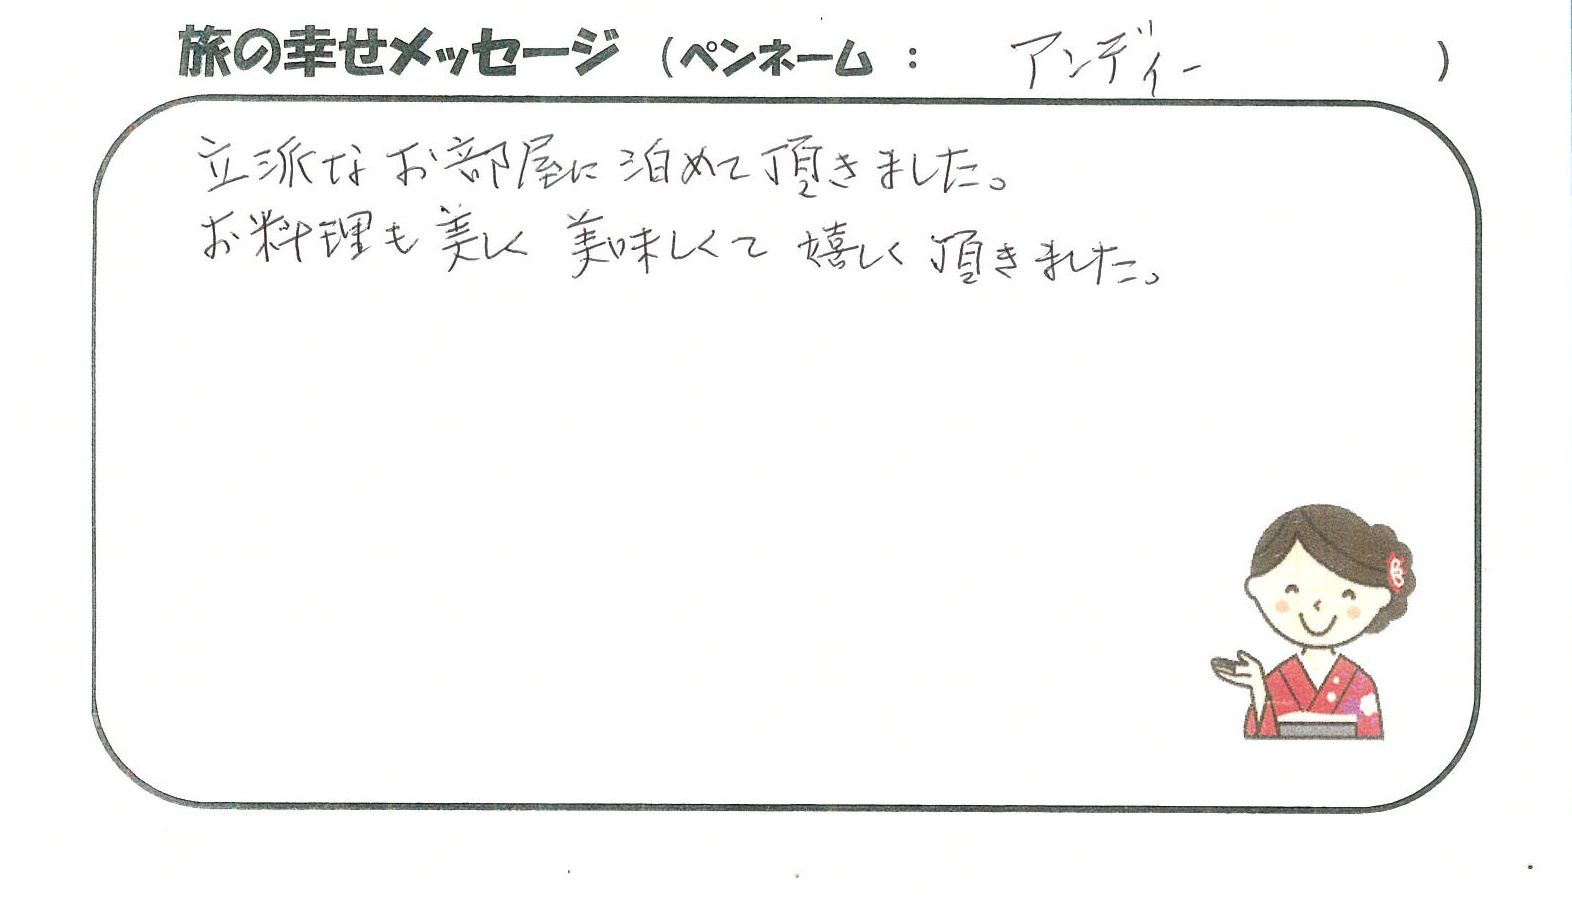 旅の幸せメッセージ（ペンネーム： アンディー ）
立派なお部屋に泊めて頂きました。
お料理も美しく美味しくて嬉しく頂きました。